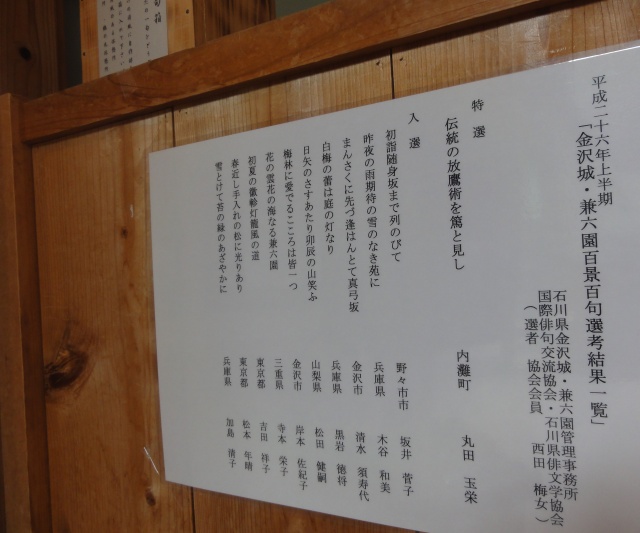 平成二十六年上半期
「金沢城・兼六園百景百句選考結果一覧」
石川県金沢城・兼六園管理事務所
国際俳句交流協会・石川県俳文学協会
(選者 協会会員 西田 梅女)
特選
伝統の放鷹術を篤と見し 内灘町 丸田 玉栄
入選
初詣随身坂まで列のびて 野々市市 坂井 菅子
昨夜の雨期待の雪のなき苑に 兵庫県 木谷 和美
まんさくに先づ逢はんとて真弓坂 金沢市 清水 須寿代
白梅の蕾は庭の灯なり 兵庫県 黒岩 徳将
日矢のさすあたり卯辰の山笑ふ 山梨県 松田 健嗣
梅林に愛でるこころは皆一つ 金沢市 岸本 佐紀子
花の雲花の海なる兼六園 三重県 寺本 栄子
初夏の徽軫灯籠風の道 東京都 吉田 祥子
春近し手入れの松に光りあり 東京都 松本 年晴
雪とけて苔の緑のあざやかに 兵庫県 加島 清子
句箱